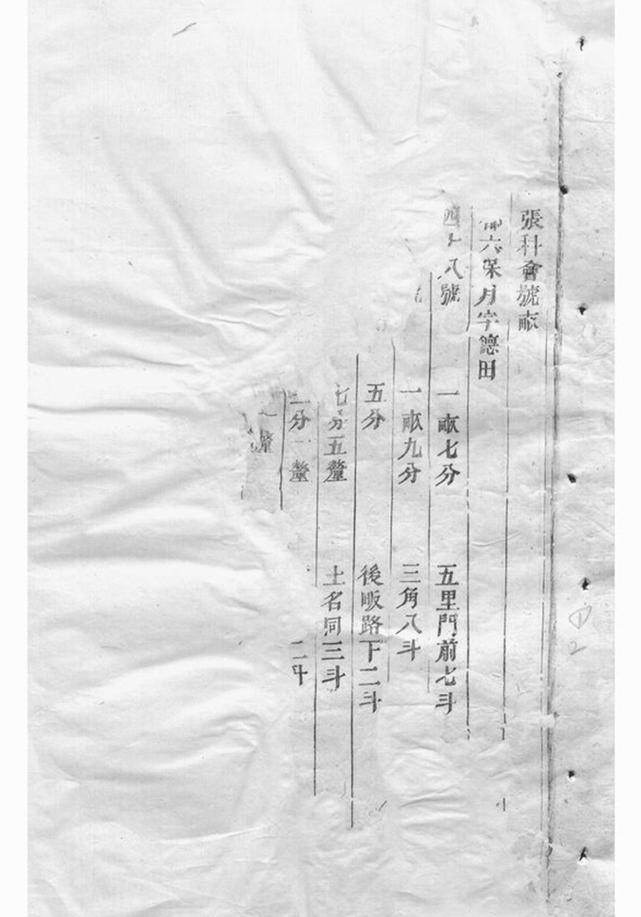 張科會號畝
六保月字號田
八號 一畝七分 五里門前七斗
一畝九分 三角八斗
五分 後畈路下二斗
七分五釐 土名同三斗
二分一釐 二斗
釐